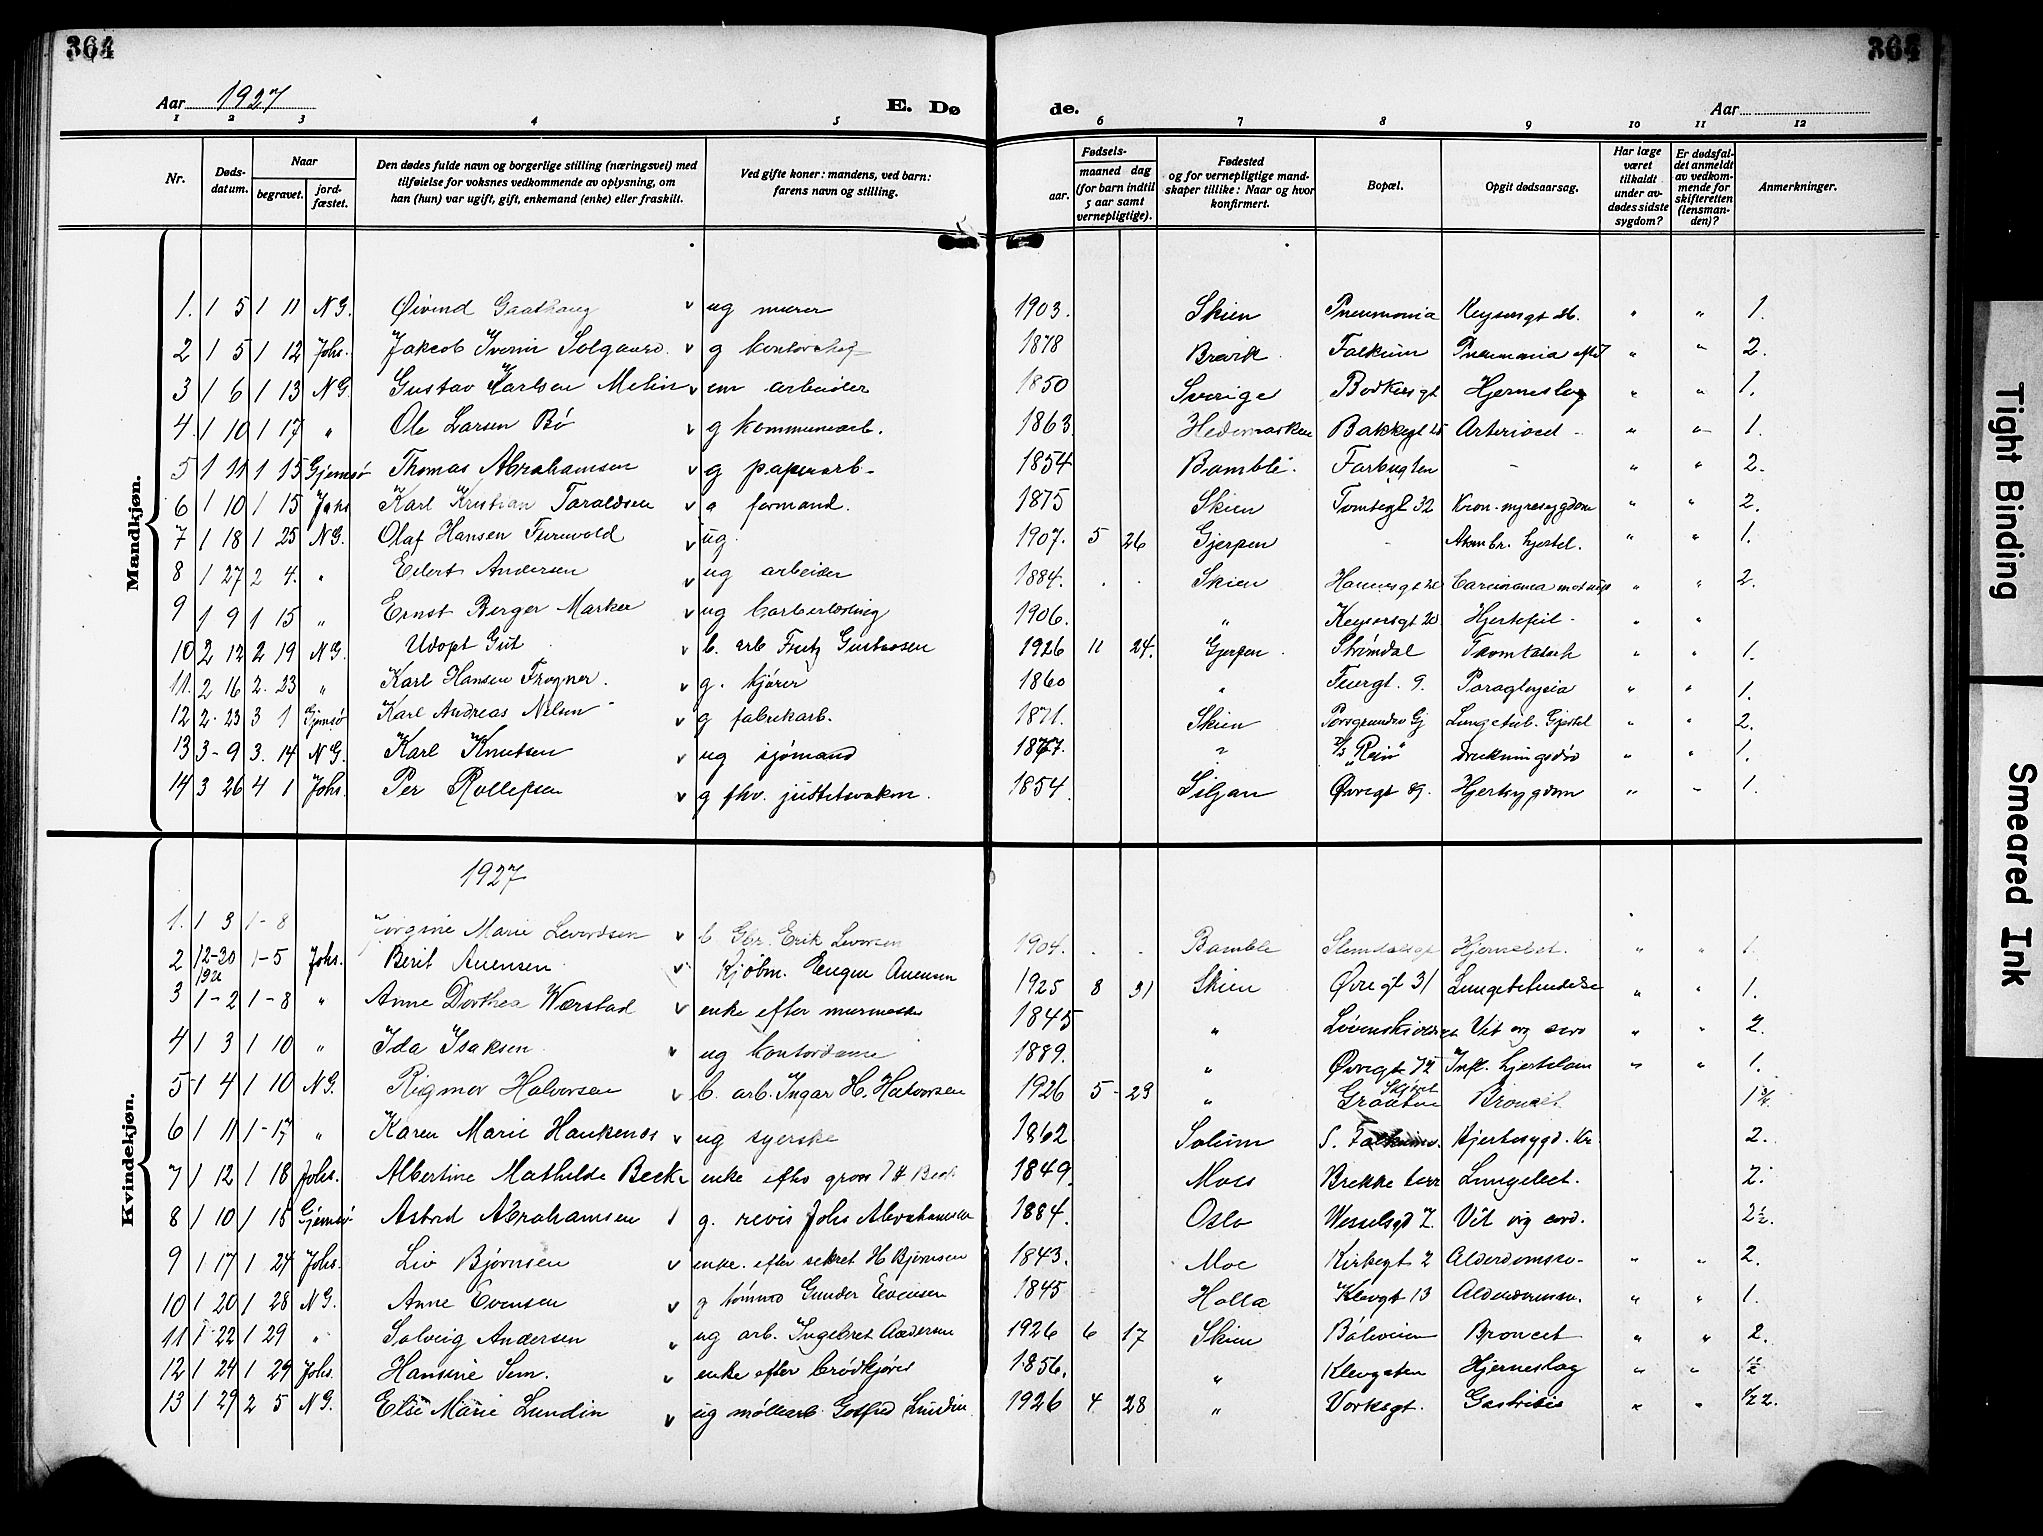 364
Aar 1927
E. Døde.
Aar
1 2 3 4 5 6 7 8 9 10 11 12
Nr.
Døds-datum.
Naar
begravet.
jord-fæstet.
Den dødes fulde navn og borgerlige stilling (næringsvei) med tilføielse for voksnes vedkommende av oplysning, om han (hun) var ugift, gift, enkemand (enke) eller fraskilt.
Ved gifte koner: mandens, ved barn: farens navn og stilling.
Fødsels-
aar.
maaned dag (for barn indtil 5 aar samt vernepligtige).
Fødested og for vernepligtige mandskaper tillike: Naar og hvor konfirmert.
Bopæl.
Opgit dødsaarsag.
Har læge været tilkaldt under avdødes sidste sygdom?
Er dødsfaldet anmeldt av vedkommende for skifteretten (lensmanden)?
Anmerkninger.
Mandkjøn.
1. 1 5 1 11 N G. Øivind Gaathaug v ug murer 1903. Skien Pneumonia Keysersgt " " 1.
2 1 5 1 12 Johs. Jakob Iverin Solgaard v g kontorchef 1878 Brevik Falkum Pneumonia " " 2.
3 1 6 1 13 N G Gustav Karlsen Melin v em arbeider 1850 Sverige Bødkersgt Hjerneslag " " 1.
4. 1 10 1 17 " Ole Larsen Bø v g kommunearb. 1863 Hedemarken Bakkegt 25 " " 1.
5 1 11 1 15 Gjemsø Thomas Abrahamsen v g papirarb- 1854 Bamble. Farbugten - " " 2.
6 1 10 1 15 Johs Karl Kristian Taraldsen v g formand. 1875 Skien Tomtegt 32 Kron. nyresygdom " " 2.
7 1 18 1 25 N G. Olaf Hansen Furuvold v ug 1907. 5 26 Gjerpen - hjertel. " " 1.
8 1 27 2 4. " Eilert Andersen v ug arbeider 1884. Skien Carcinoma " " 2.
9 1 9 1 15 " Ernst Berger Marker v ug barberlærling 1906. " Keysersgt 20 Hjertefeil - " "
10 2 12 2 19 N G. Udøpt Gut v b. arb Fritz Gustavsen 1926 11 24. Gjerpen Strømdal " " 1.
11. 2 16 2. 23 " Karl Hansen Frogner. v g. kjører 1860 " Fuergt. 9. " " 1.
12 2. 23 3 1 Gjemsø Karl Andreas Nilsen v g fabrikarb. 1871. Skien Porsgrundsv Lungetub. " " 2.
13 3-9 3. 14 N G. Karl Knutsen v ug sjømand 1877. ? D/S "Rein" Drukningsdød " " 1.
14 3 26 4 1 Johs. Per Rollefsen v g fhv. 1854. Siljan Øvregt 89. Hjertesygdom " " 1.
Kvindekjøn.
1927
1. 1 3 1-8 Jørgine Marie Levordsen v b Gbr. Erik Levorsen 1904. Bamble Slemdalsgt Hjernebet. " " 1.
2 12-30 1-5 Johs. Berit Auensen v Kjøbm. Eugen Auensen 1925 8 31 Skien Øvregt 31 Lungebetændelse " " 1.
3 1-2 1-8 " Anne Dorthea Wærstad v enke efter murmester 1845 " Løvenskioldsgt " " 2.
4 1 3 1 10 " Ida Isaksen v ug kontordame 1889. " Øvregt Infl. " " 1.
5 1 4 1 10 N G. Rigmor Halvorsen v b. arb. Ingar H. Halvorsen 1926 5 29 " Graaten Broncit
6 1 11 1-17 " Karen Marie Haukenes v ug syerske 1862 Solum S. Falkum. Hjertesygd. Kr 2.
7 1 12 1 18 Johs. Albertine Mathilde Beck v enke efter gross 1849. Moss Brekke terr Lungebet. 2.
8 1 10 1 15 Gjemsø Astrid Abrahamsen g. revis Johs Abrahamsen 1884. Oslo Wesselsgt 7. Vit org cord. 2½.
9 1 17 1 24 Johs. Liv Bjørnsen v enke. efter sekret H Bjørnsen 1843. Moe Kirkegt 2 " " 2.
10 1 20 1 28 N G. Anne Evensen v g Gunder Evensen 1845 Holla Klevgt 13 " " 1.
11 1 22 1 29 " Solveig Andersen v ug arb. Ingebret Andersen 1926 6 17 Skien Bøleveien Broncit " " 2.
12 1 24 1 29 Johs. Hansine Sem. v enke efter brødkjører 1856. " Klevgaten Hjerneslag " "
13 1 29 2 5 N G. Else Marie Lundin v ug møllearb. Gotfred Lundin 1926 4 28 " Vorkegt. Gastritis " "
Tight Binding
Smeared Ink